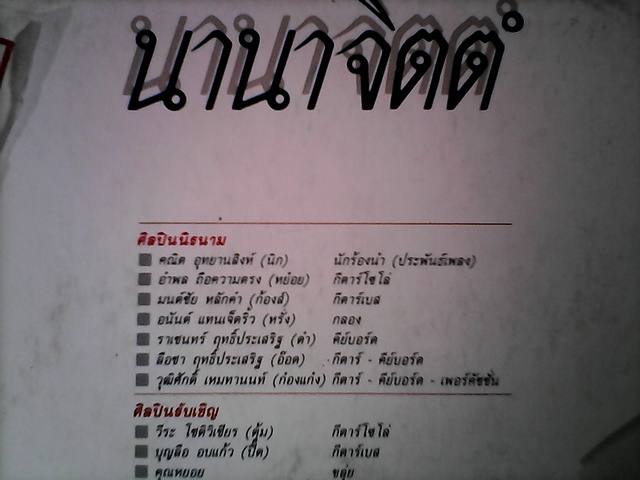 นานาจิตตํ
ศิลปินนิรนาม
คณิต อุทยานสิงห์ (นิก) นักร้องนำ (ประพันธ์เพลง)
อำพล ถือความตรง (หย่อย) กีตาร์โซโล่
มนต์ชัย หลักคำ (ก้องส์) กีตาร์เบส
อนันต์ แทนเจ็ดริ้ว (หรั่ง) กลอง
ราเชนทร์ ฤทธิ์ประเสริฐ (ดำ) คีย์บอร์ด
ลือชา ฤทธิ์ประเสริฐ (อ๊อด) กีตาร์ - คีย์บอร์ด
วุฒิศักดิ์ เหมทานนท์ (ก๋องแก๋ง) กีตาร์ - คีย์บอร์ด - เพอร์คัชชั่น
ศิลปินรับเชิญ
วีระ โชติวิเชียร (ตุ้ม) กีตาร์โซโล่
บุญลือ อบแก้ว (ปื๊ด) กีตาร์เบส
คุณหยอย ขลุ่ย